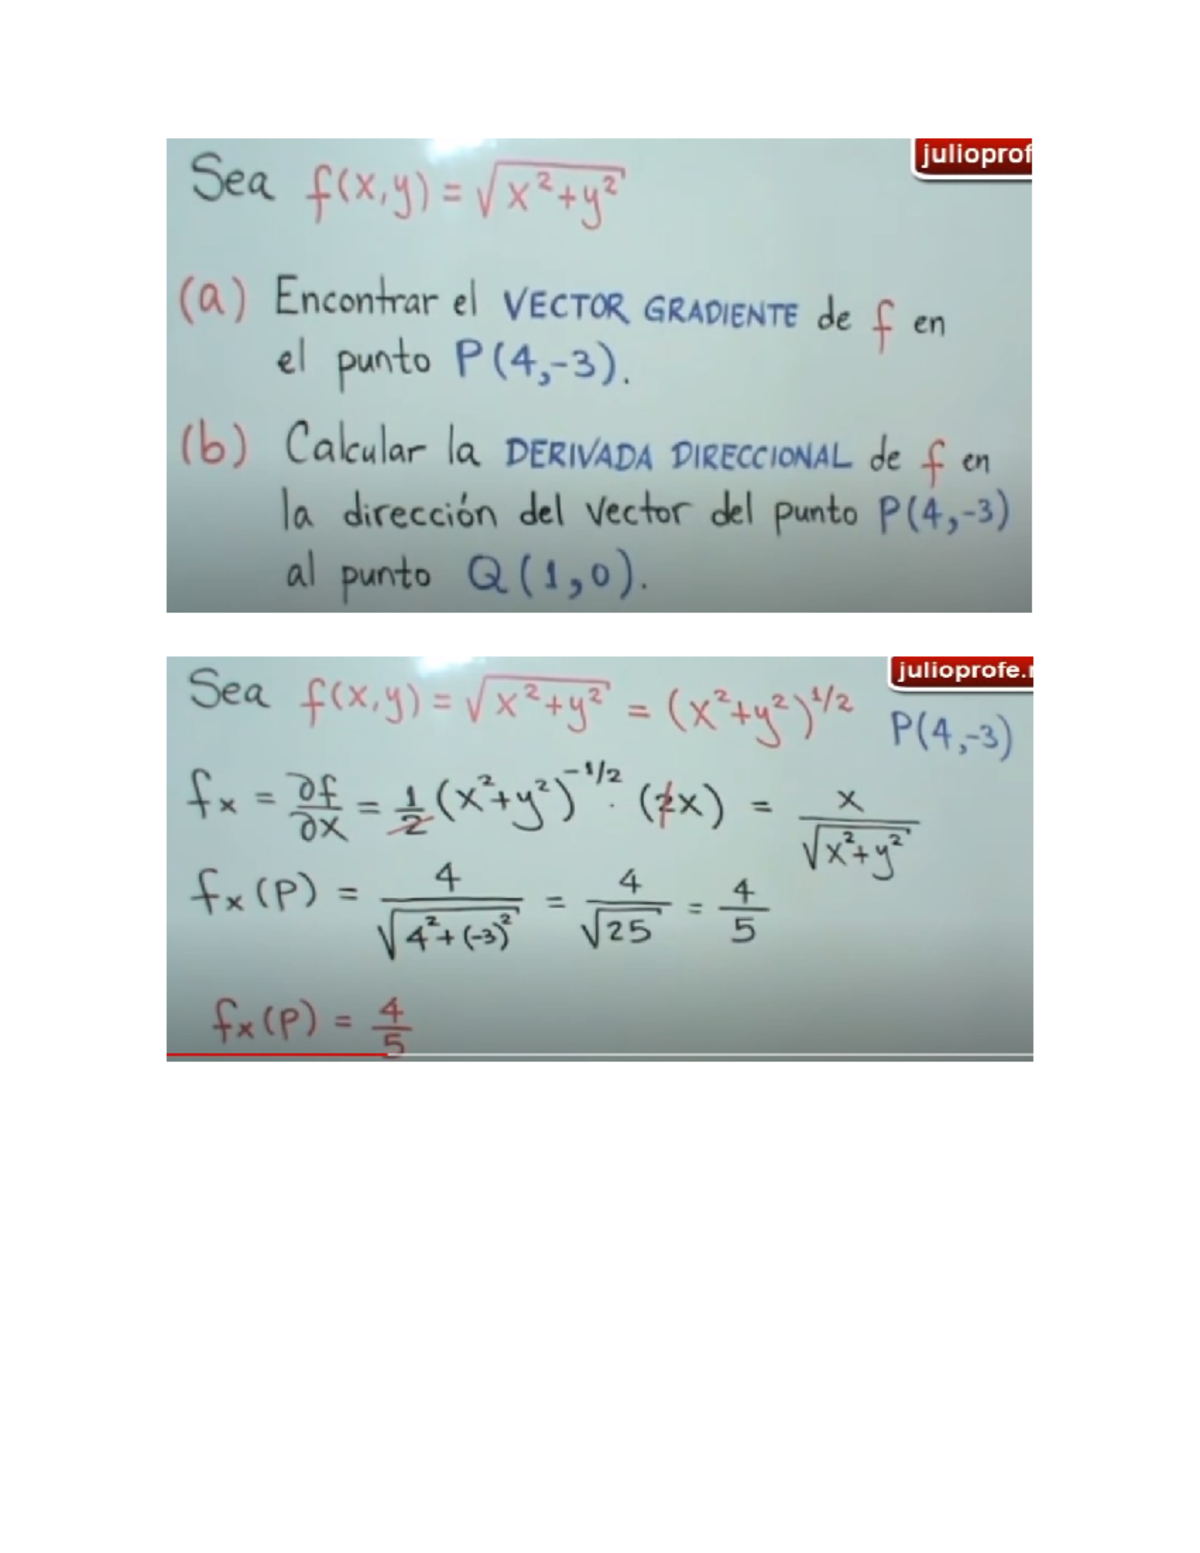 julioprof
Sea f(x,y) = √(x²+y²)
(a) Encontrar el VECTOR GRADIENTE de f en
el punto P(4,-3).
(b) Calcular la DERIVADA DIRECCIONAL de f en
la dirección del vector del punto P(4,-3)
al punto Q(1,0).
julioprofe.
Sea f(x,y) = √(x²+y²) = (x²+y²)^1/2 P(4,-3)
fx = ∂f/∂x = 1/2 (x²+y²)^-1/2 · (2x) = x/√(x²+y²)
fx(P) = 4/√(4²+(-3)²) = 4/√25 = 4/5
fx(P) = 4/5